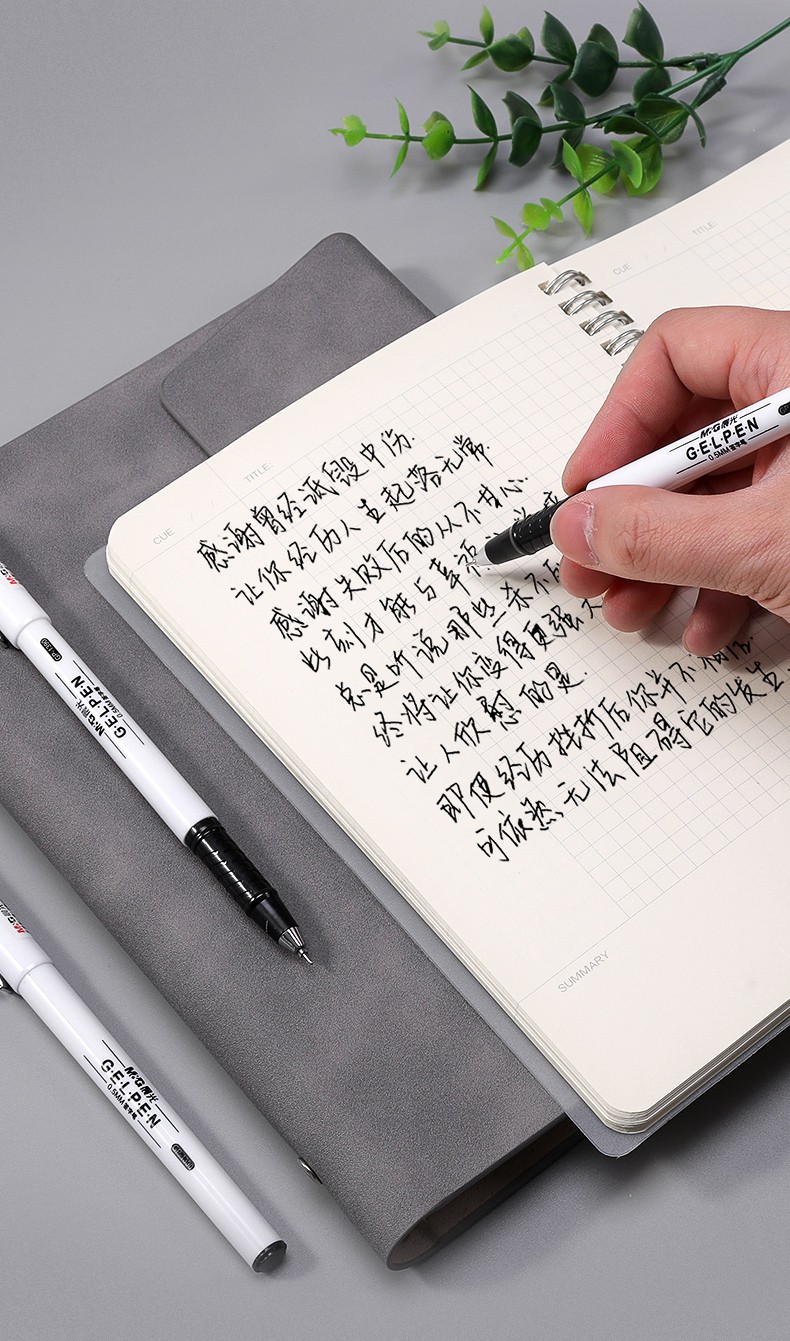 CUE
TITLE:
CUE
TITLE:
感谢曾经诋毁中伤.
让你经历人生起落无常.
感谢失败后的从不甘心.
此刻才能与幸
总是听说那些杀不
终将让你变得更强大
让人欣慰的是.
即便经历挫折后你并不
可依然无法阻碍它的发生.
SUMMARY
M&G晨光
G·E·L·P·E·N
0.5MM签字笔
M&G晨光
G·E·L·P·E·N
0.5MM签字笔
M&G晨光
G·E·L·P·E·N
0.5MM签字笔